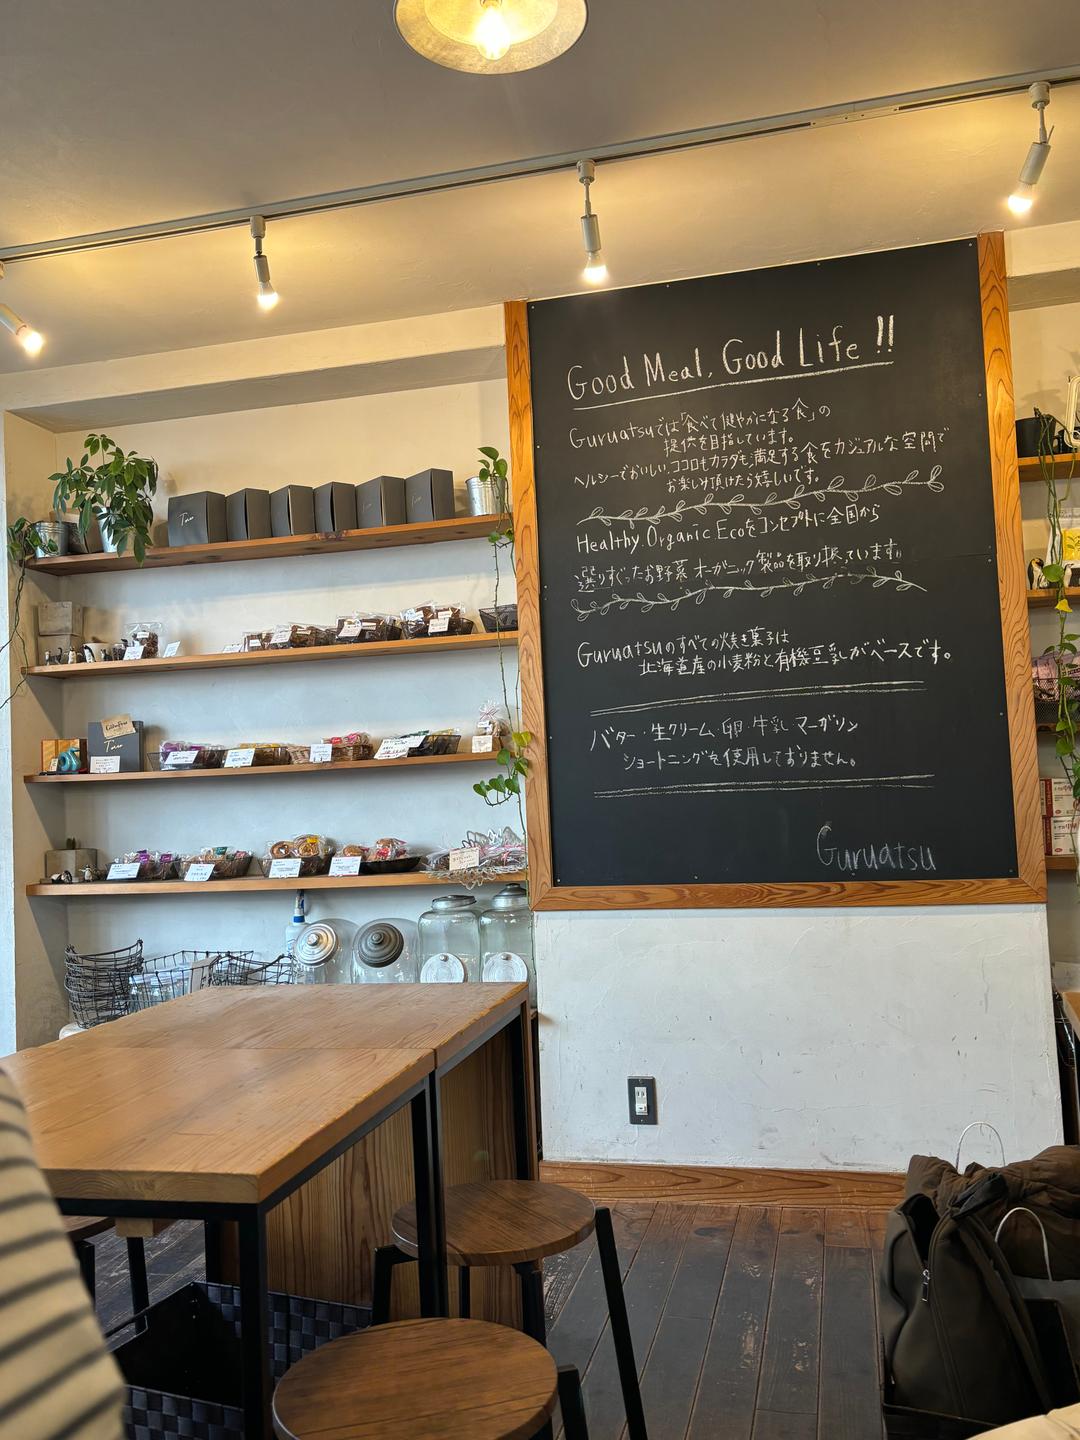 Good Meal, Good Life!!
Guruatsuでは「食べて健やかになる食」の
提供を目指しています。
ヘルシーでおいしい、ココロもカラダも満足する食をカジュアルな空間で
お楽しみ頂けたら嬉しいです。
Healthy.Organic.Ecoをコンセプトに全国から
選りすぐったお野菜 オーガニック製品を取り扱ています。
Guruatsuのすべての焼き菓子は
北海道産の小麦粉と有機豆乳がベースです。
バター・生クリーム・卵・牛乳・マーガリン
ショートニングを使用しておりません。
Guruatsu